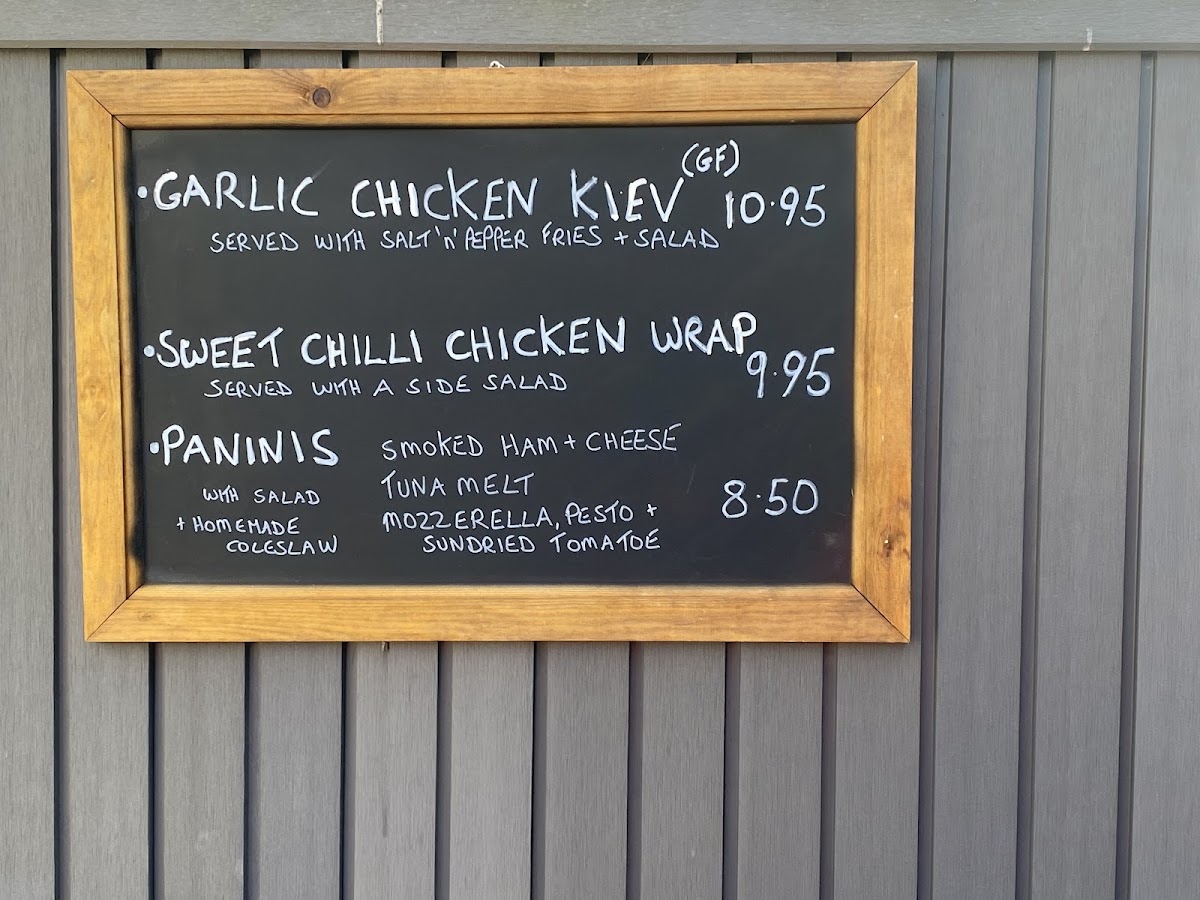 •GARLIC CHICKEN KIEV (GF) 10.95
SERVED WITH SALT 'n' PEPPER FRIES + SALAD
•SWEET CHILLI CHICKEN WRAP 9.95
SERVED WITH A SIDE SALAD
•PANINIS
WITH SALAD
+ HOMEMADE
COLESLAW
SMOKED HAM + CHEESE
TUNA MELT
MOZZERELLA, PESTO +
SUNDRIED TOMATOE
8.50